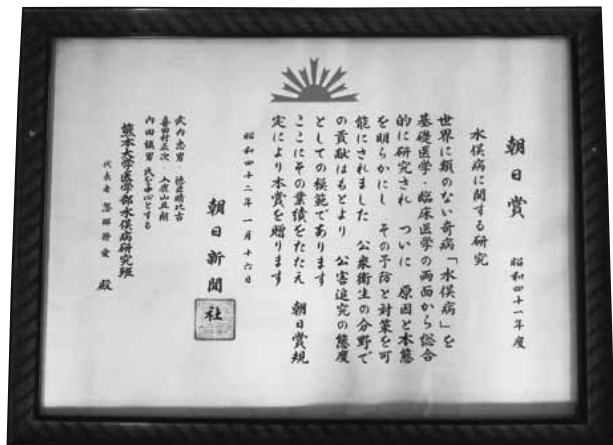 朝日賞 昭和四十一年度
水俣病に関する研究
世界に類のない奇病「水俣病」を
基礎医学・臨床医学の両面から総合
的に研究され ついに 原因と本態
を明らかにし その予防と対策を可
能にされました 公衆衛生の分野で
の貢献はもとより 公害追究の態度
としての模範であります
ここにその業績をたたえ 朝日賞規
定により本賞を贈ります
昭和四十二年一月十六日
朝日新聞社
武内忠男 徳臣晴比古
喜田村正次 入鹿山且朗
内田槙男 氏を中心とする
熊本大学医学部水俣病研究班
代表者 殿